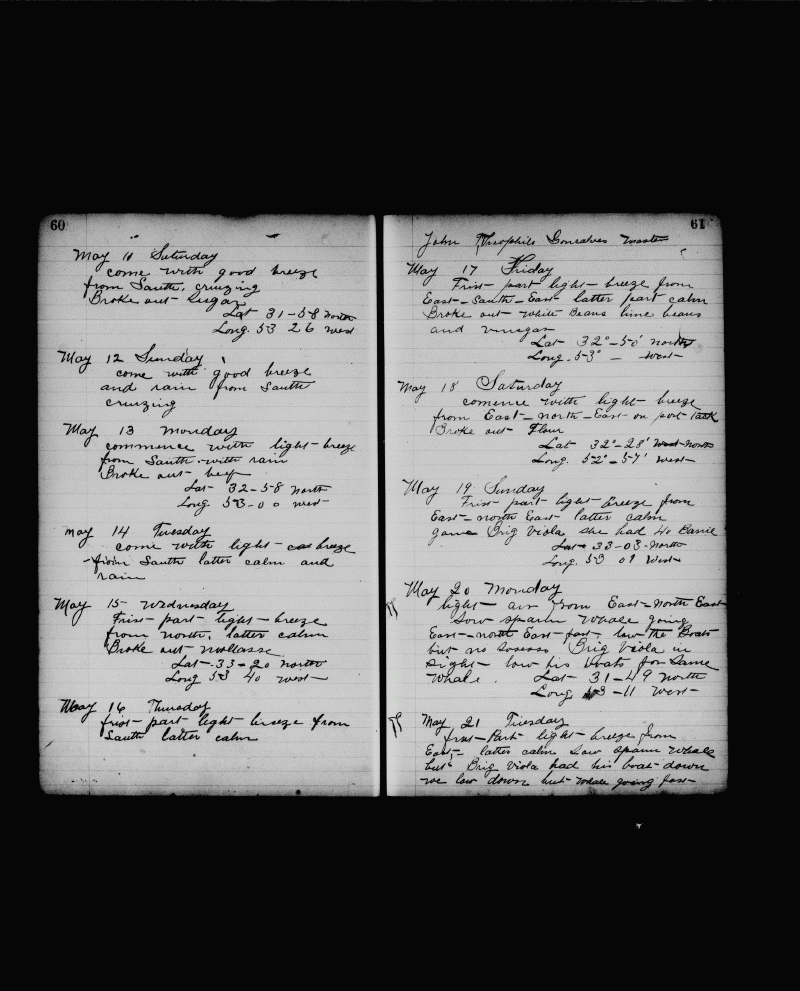 60
May 11 Saturday
come with good breeze
from South. cruizing
Broke out Sugar
Lat 31-58 North
Long. 53 26 West
May 12 Sunday
come with good breeze
and rain from South
cruizing
May 13 Monday
commence with light breeze
from South with rain
Broke out beef
Lat 32-58 North
Long 53-00 West
May 14 Tuesday
come with light breeze
from South latter calm and
rain
May 15 Wednesday
Frist part light breeze
from north. latter calm
Broke out mollasse
Lat. 33-20 North
Long 53 40 West
May 16 Thursday
frist part light breeze from
South latter calm
61
John Theophilo Gonsalves master
May 17 Friday
Frist part light breeze from
East-South-East latter part calm
Broke out white Beans lime beans
and vinegar
Lat 32°-50' North
Long. 53° - West
May 18 Saturday
comence with light breeze
from East-north-East on port tack
Broke out Flour
Lat 32°-28' North
Long. 52°-57' West
May 19 Sunday
Frist part light Breeze from
East-north East latter calm
game Brig Viola she had 40 Barrie
Lat 33-03-North
Long. 53 01 West
May 20 Monday
light air from East-North East
Sow sparm Whale going
East-north East fast, low the Boats
but no Sosess Brig Viola in
Sight low his boats for Same
Whale. Lat 31-49 North
Long 53-11 West
May 21 Tuesday
frist Part light breeze from
East, latter calm Sow sparm Whale
but Brig Viola had his boat down
we low down but whale going fast